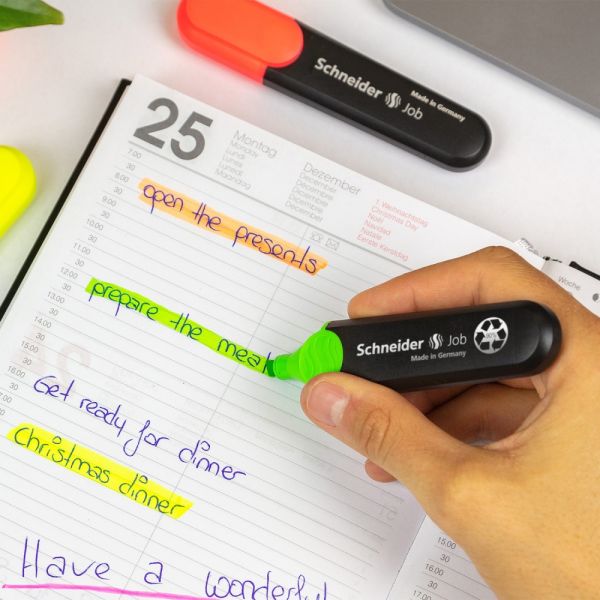 Schneider Job
Made in Germany
25
Montag
Monday
Lundi
Lunes
Lunedì
Maandag
Dezember
December
Décembre
Diciembre
Dicembre
December
1. Weihnachtstag
Christmas Day
Noël
Navidad
Natale
Eerste Kerstdag
7.00
30
8.00
30
9.00
30
10.00
30
11.00
30
12.00
30
13.00
30
14.00
30
15.00
30
16.00
30
17.00
open the presents
prepare the meal
Get ready for dinner
Christmas dinner
Have a wonderful
Schneider Job
Made in Germany
Woche
15.00
30
16.00
30
17.00
30
18.00